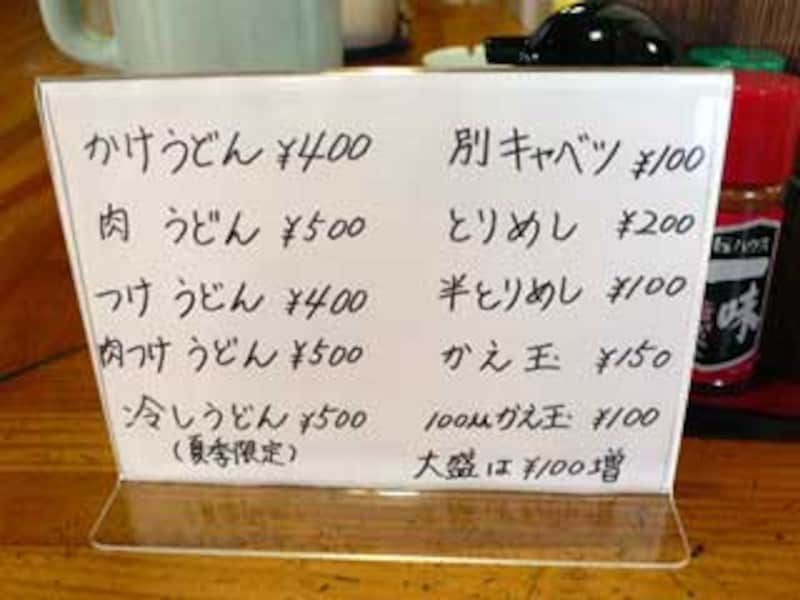 かけうどん ¥400
肉 うどん ¥500
つけ うどん ¥400
肉つけ うどん ¥500
冷しうどん ¥500
(夏季限定)
別キャベツ ¥100
とりめし ¥200
半とりめし ¥100
かえ玉 ¥150
100円かえ玉 ¥100
大盛は ¥100増
ハウス
一味